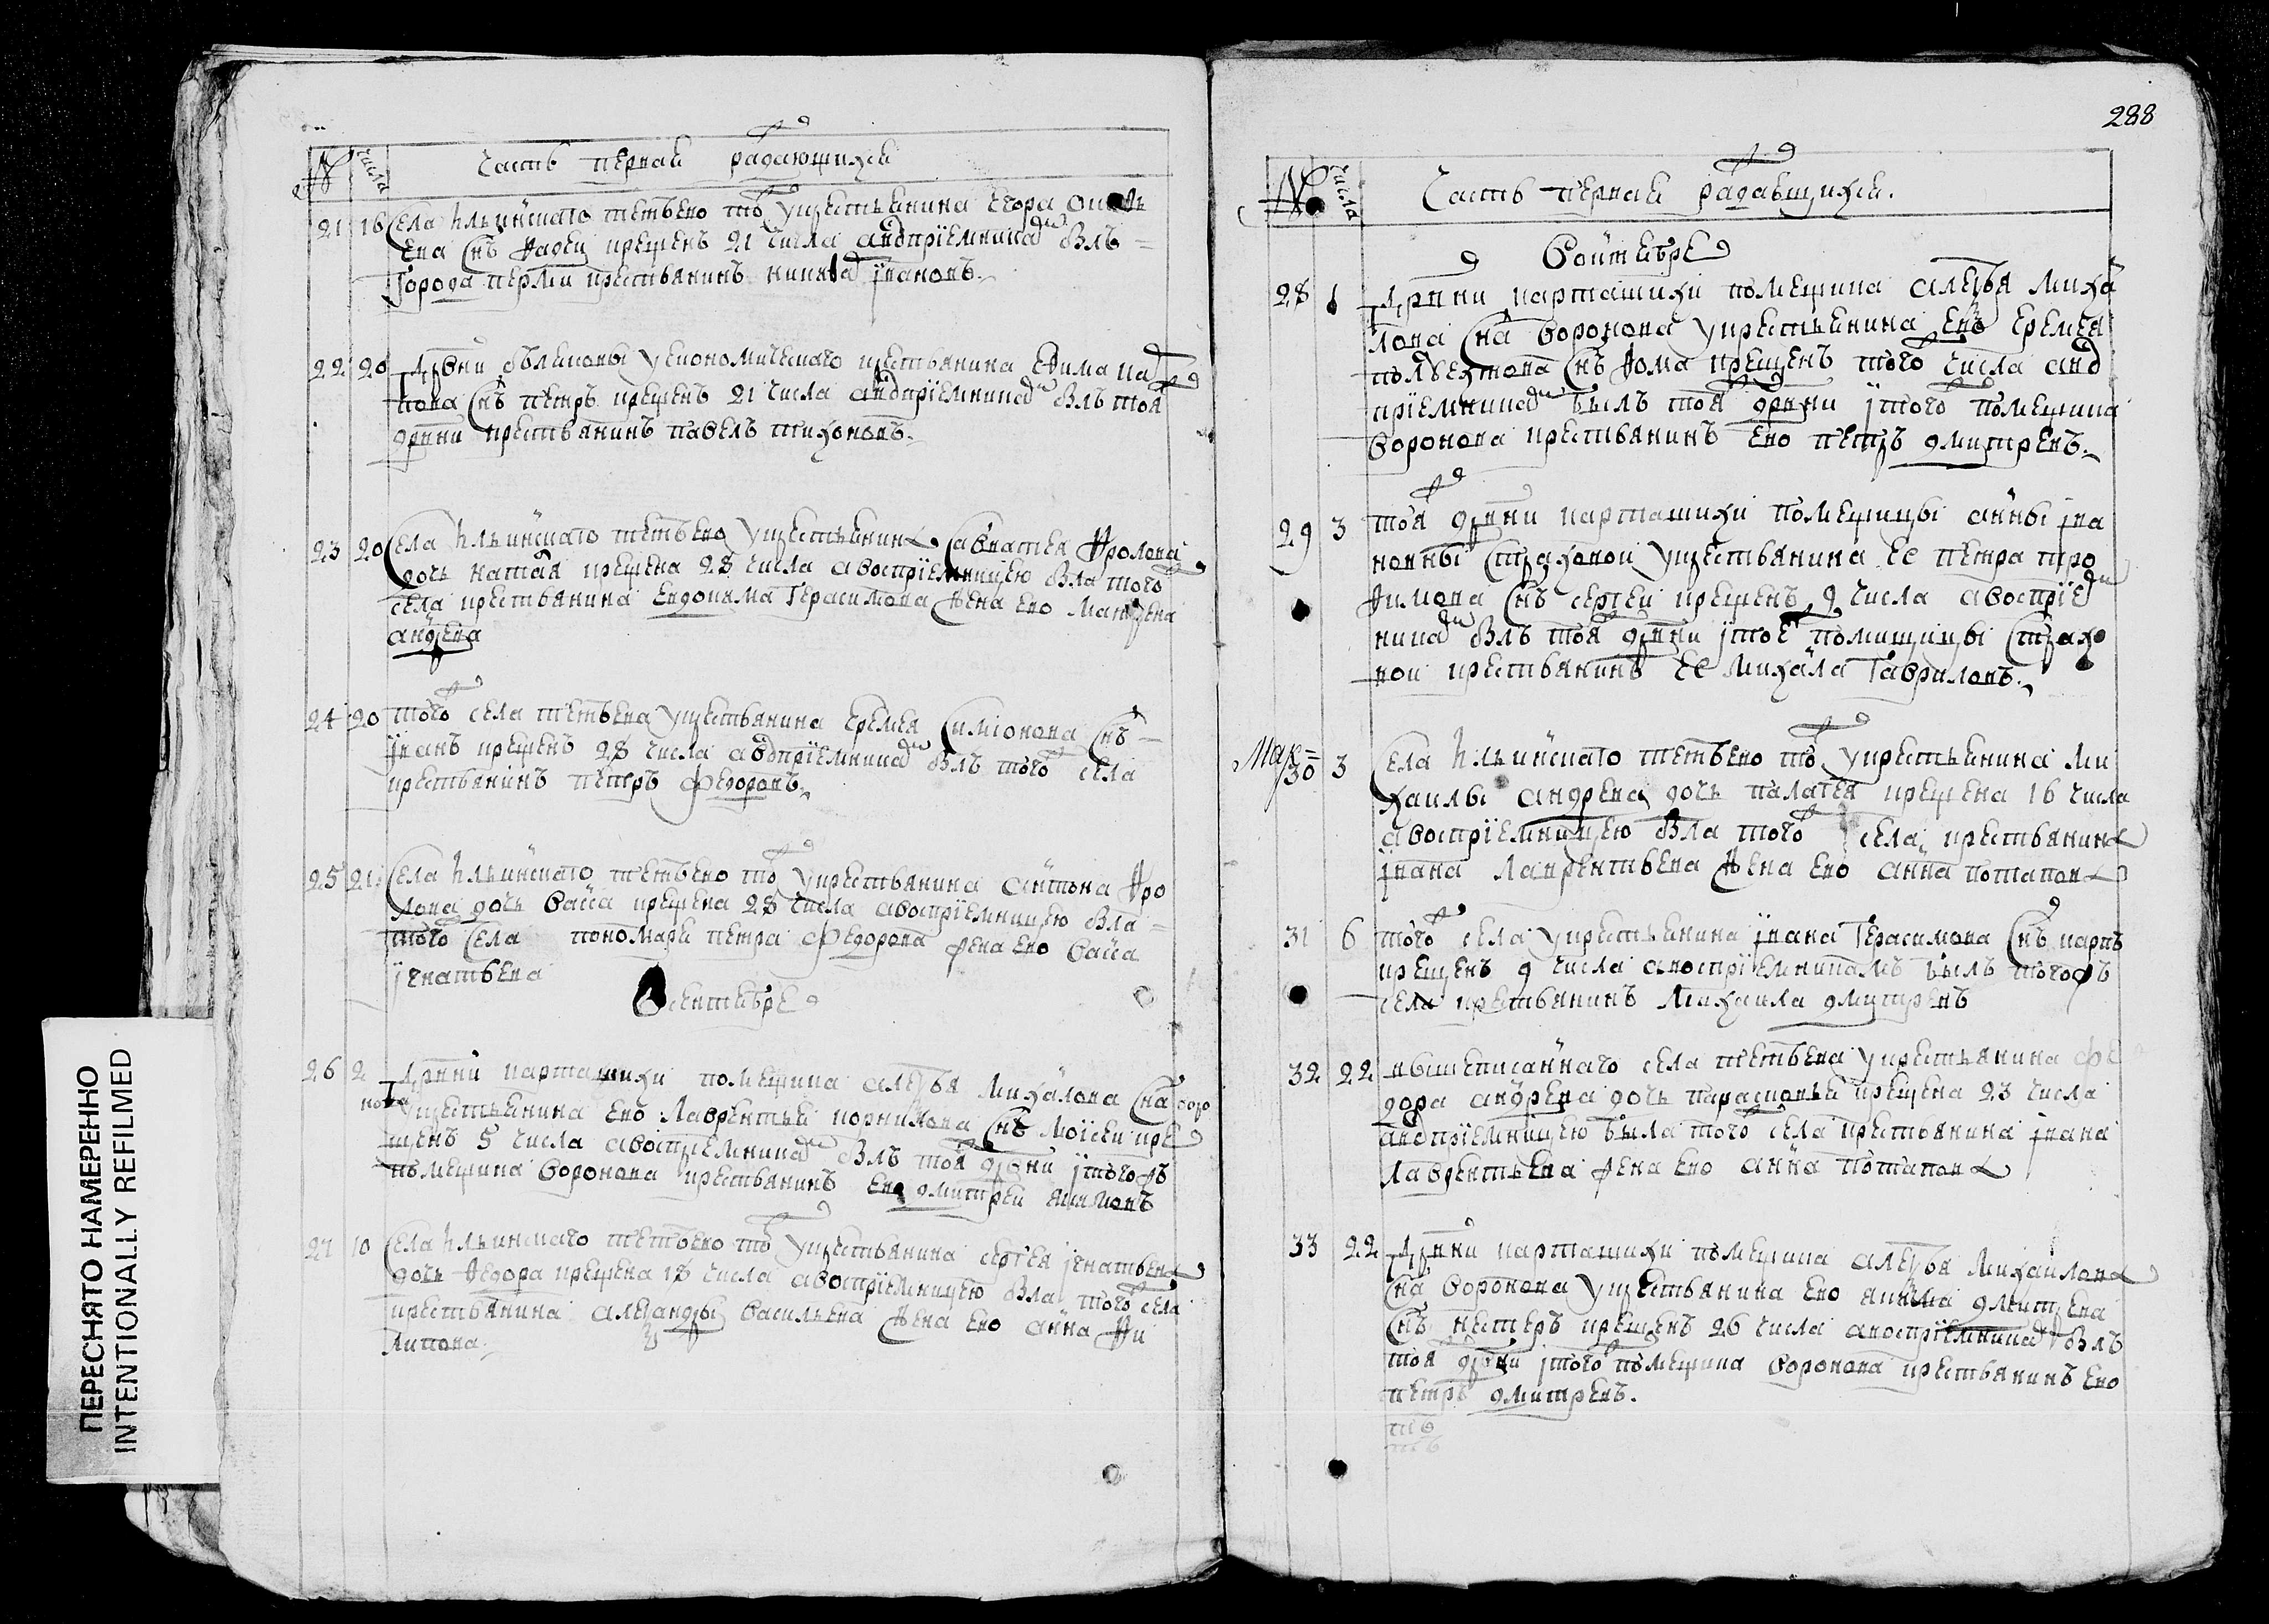 288
№ числа Часть первая раждающихся
21 16 Села Ильинскаго тетьево тоже у крестьянина егора
ева снъ фадеи крещенъ 21 числа а воспріемникомъ былъ
города перми крестьянинъ никита івановъ.
22 20 Дрвни бѣлековы у економическаго крестьянина ефима
пова снъ петръ крещенъ 21 числа а воспріемникомъ былъ тоя
дрвни крестьянинъ павелъ тихоновъ.
23 20 Села Ильинскаго тетьево у крестьянина савватея фролова
дочь наталя крещена 28 числа а воспріемницею была того
села крестьянина евдокима Герасимова жена ево
андреева
24 20 того села тетьева у крестьянина еремея симіонова снъ
іванъ крещенъ 28 числа а воспріемникомъ былъ того села
крестьянинъ петръ федоровъ.
25 21 Села Ильинскаго тетьево тоже у крестьянина антона фро
лова дочь васса крещена 28 числа а воспріемницею была
того села пономаря петра федорова жена ево васса
ігнатьева
в сентябре
26 2 Дрвни карташихи помещика алеѯѣя михаилова сна воро
нова у крестьянина ево лаврентья корнилова снъ моісеи кре
щенъ 5 числа а воспріемникомъ былъ тоя дрвни і того жъ
помещика воронова крестьянинъ ево дмитреи якимовъ
27 10 Села Ильинскаго тетьево тоже у крестьянина сергея ігнатьева
дочь федора крещена 18 числа а воспріемницею была того села
крестьянина алеѯандры васильева жена ево анна фи
липова.
№ числа Часть первая раждающихся.
в октябре
28 1 Дрвни карташихи помещика алеѯѣя михаи
лова сна воронова у крестьянина ево еремея
полуехтова снъ фома крещенъ того числа а вос
пріемникомъ былъ тоя дрвни і того помещика
воронова крестьянинъ ево петръ дмитревъ.
29 3 тоя дрвни карташихи помещицы анны іва
новны страховои у крестьянина ее петра тро
фимова снъ сергеи крещенъ 9 числа а воспріем
никомъ былъ тоя дрвни і тое помищицы страхо
вои крестьянинъ ее михаила Гавриловъ.
30 3 Села Ильинскаго тетьево тоже у крестьянина ми
хаилы андреева дочь палагея крещена 16 числа
а воспріемницею была того села крестьянина
івана лаврентьева жена ево анна потапова
31 6 того села у крестьянина івана Герасимова снъ карпъ
крещенъ 9 числа а воспріемникамъ былъ того жъ
села крестьянинъ михаила дмитревъ
32 22 вышеписаннаго села тетьева у крестьянина фе
дора андреева дочь парасковья крещена 23 числа
а воспріемницею была того села крестьянина івана
лаврентьева жена ево анна потапова
33 22 Дрвни карташихи помещика алеѯѣя михаилова
сна воронова у крестьянина ево якима дмитрева
снъ нестеръ крещенъ 26 числа а воспріемникомъ былъ
тоя дрвни і того помещика воронова крестьянинъ ево
петръ дмитревъ.
ПЕРЕСНЯТО НАМЕРЕННО
INTENTIONALLY REFILMED